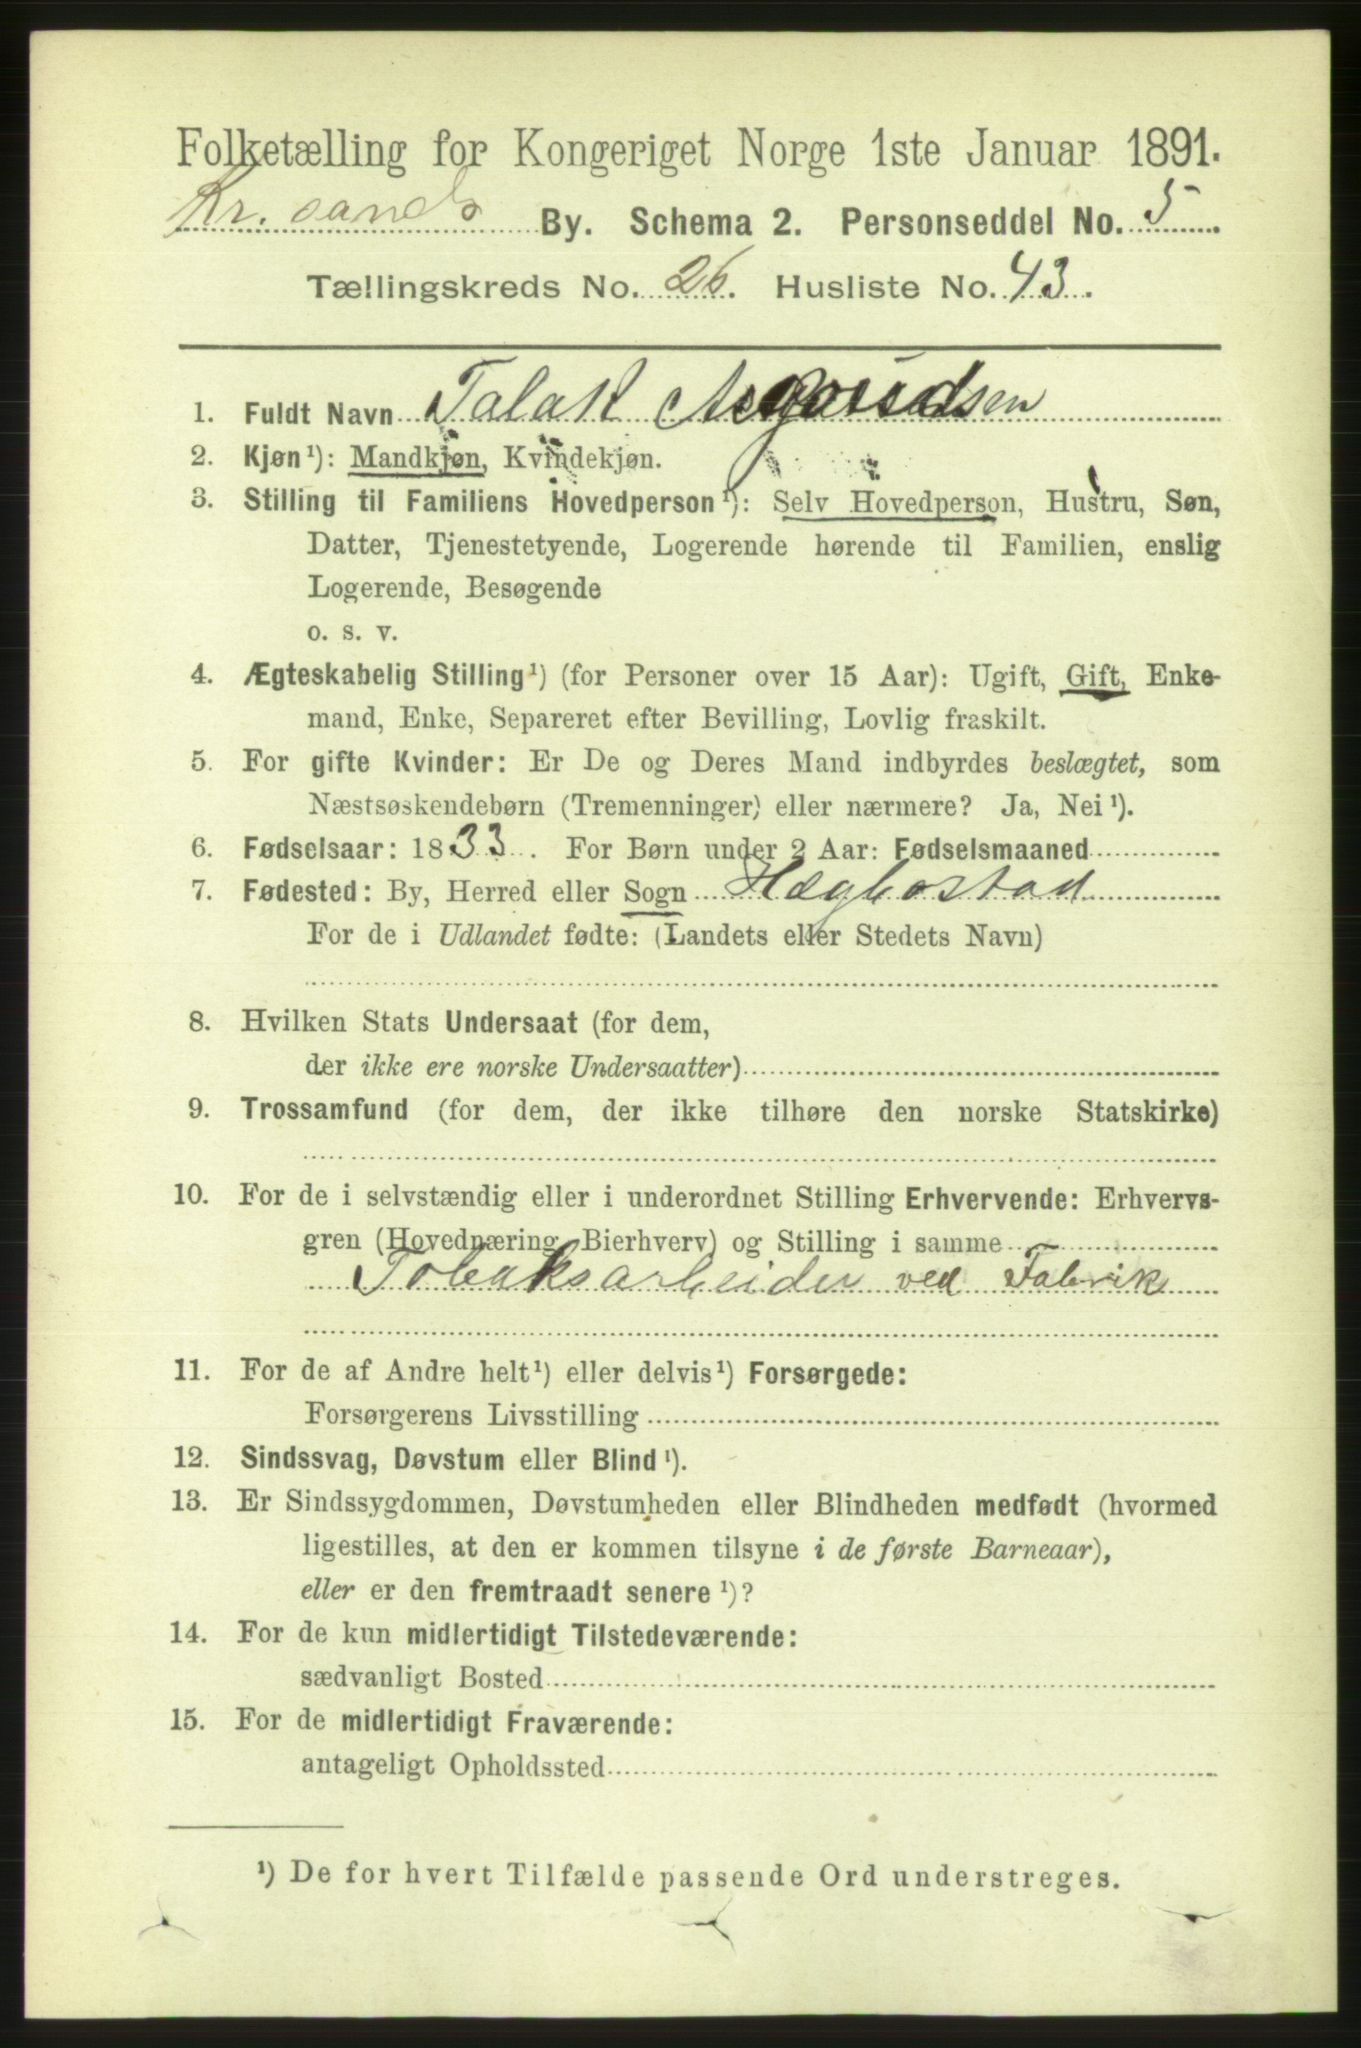 Folketælling for Kongeriget Norge 1ste Januar 1891.
Kr. sands By. Schema 2. Personseddel No. 5
Tællingskreds No. 26. Husliste No. 43.
1. Fuldt Navn Talak
2. Kjøn¹): Mandkjøn, Kvindekjøn.
3. Stilling til Familiens Hovedperson¹): Selv Hovedperson, Hustru, Søn,
Datter, Tjenestetyende, Logerende hørende til Familien, enslig
Logerende, Besøgende
o. s. v.
4. Ægteskabelig Stilling¹) (for Personer over 15 Aar): Ugift, Gift, Enke-
mand, Enke, Separeret efter Bevilling, Lovlig fraskilt.
5. For gifte Kvinder: Er De og Deres Mand indbyrdes beslægtet, som
Næstsøskendebørn (Tremenninger) eller nærmere? Ja, Nei¹).
6. Fødselsaar: 1833. For Børn under 2 Aar: Fødselsmaaned
7. Fødested: By, Herred eller Sogn Hægbostad
For de i Udlandet fødte: (Landets eller Stedets Navn)
8. Hvilken Stats Undersaat (for dem,
der ikke ere norske Undersaatter)
9. Trossamfund (for dem, der ikke tilhøre den norske Statskirke)
10. For de i selvstændig eller i underordnet Stilling Erhvervende: Erhvervs-
gren (Hovednæring, Bierhverv) og Stilling i samme
Tobaksarbeider ved Fabrik
11. For de af Andre helt¹) eller delvis¹) Forsørgede:
Forsørgerens Livsstilling
12. Sindssvag, Døvstum eller Blind¹).
13. Er Sindssygdommen, Døvstumheden eller Blindheden medfødt (hvormed
ligestilles, at den er kommen tilsyne i de første Barneaar),
eller er den fremtraadt senere¹)?
14. For de kun midlertidigt Tilstedeværende:
sædvanligt Bosted
15. For de midlertidigt Fraværende:
antageligt Opholdssted
¹) De for hvert Tilfælde passende Ord understreges.